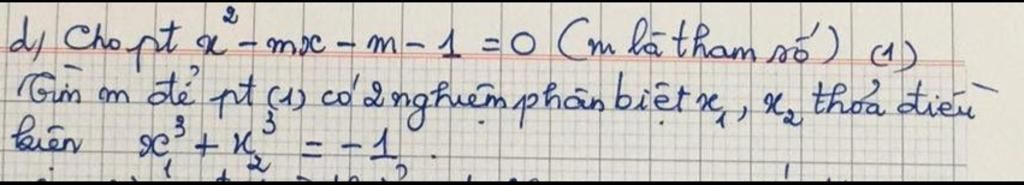 d) Cho pt x² - mx - m - 1 = 0 (m là tham số) (1)
Tìm m để pt (1) có 2 nghiệm phân biệt x₁, x₂ thoả điều
kiện x₁³ + x₂³ = -1.